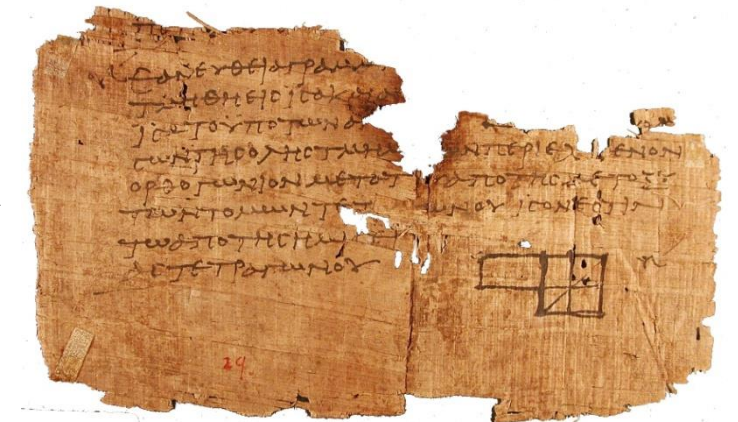 ΕΑΝ ΕΥΘΕΙΑ ΓΡΑΜΜ
ΤΜΗΘΗ ΕΙϹ ΙϹΑ ΚΑΙ Α
ΙϹΑ ΤΟ ΥΠΟ ΤΩΝ Α
ϹΩΝ ΤΗϹ ΟΛΗϹ ΤΜΗΜ ΩΝ ΠΕΡΙΕΧ ΕΝΟΝ
ΟΡΘΟΓΩΝΙΟΝ ΜΕΤΑ Τ ΑΠΟ ΤΗϹ ΜΕΤΟΞΥ
ΤΩΝ ΤΟΜΩΝ ΤΕΤ ΩΝΟΥ ΙϹΟΝ ΕϹΤΙΝ
ΤΩ ΑΠΟ ΤΗϹ ΗΜΙϹΕΙ
ΑϹ ΤΕΤΡΑΓΩΝΟΥ
29